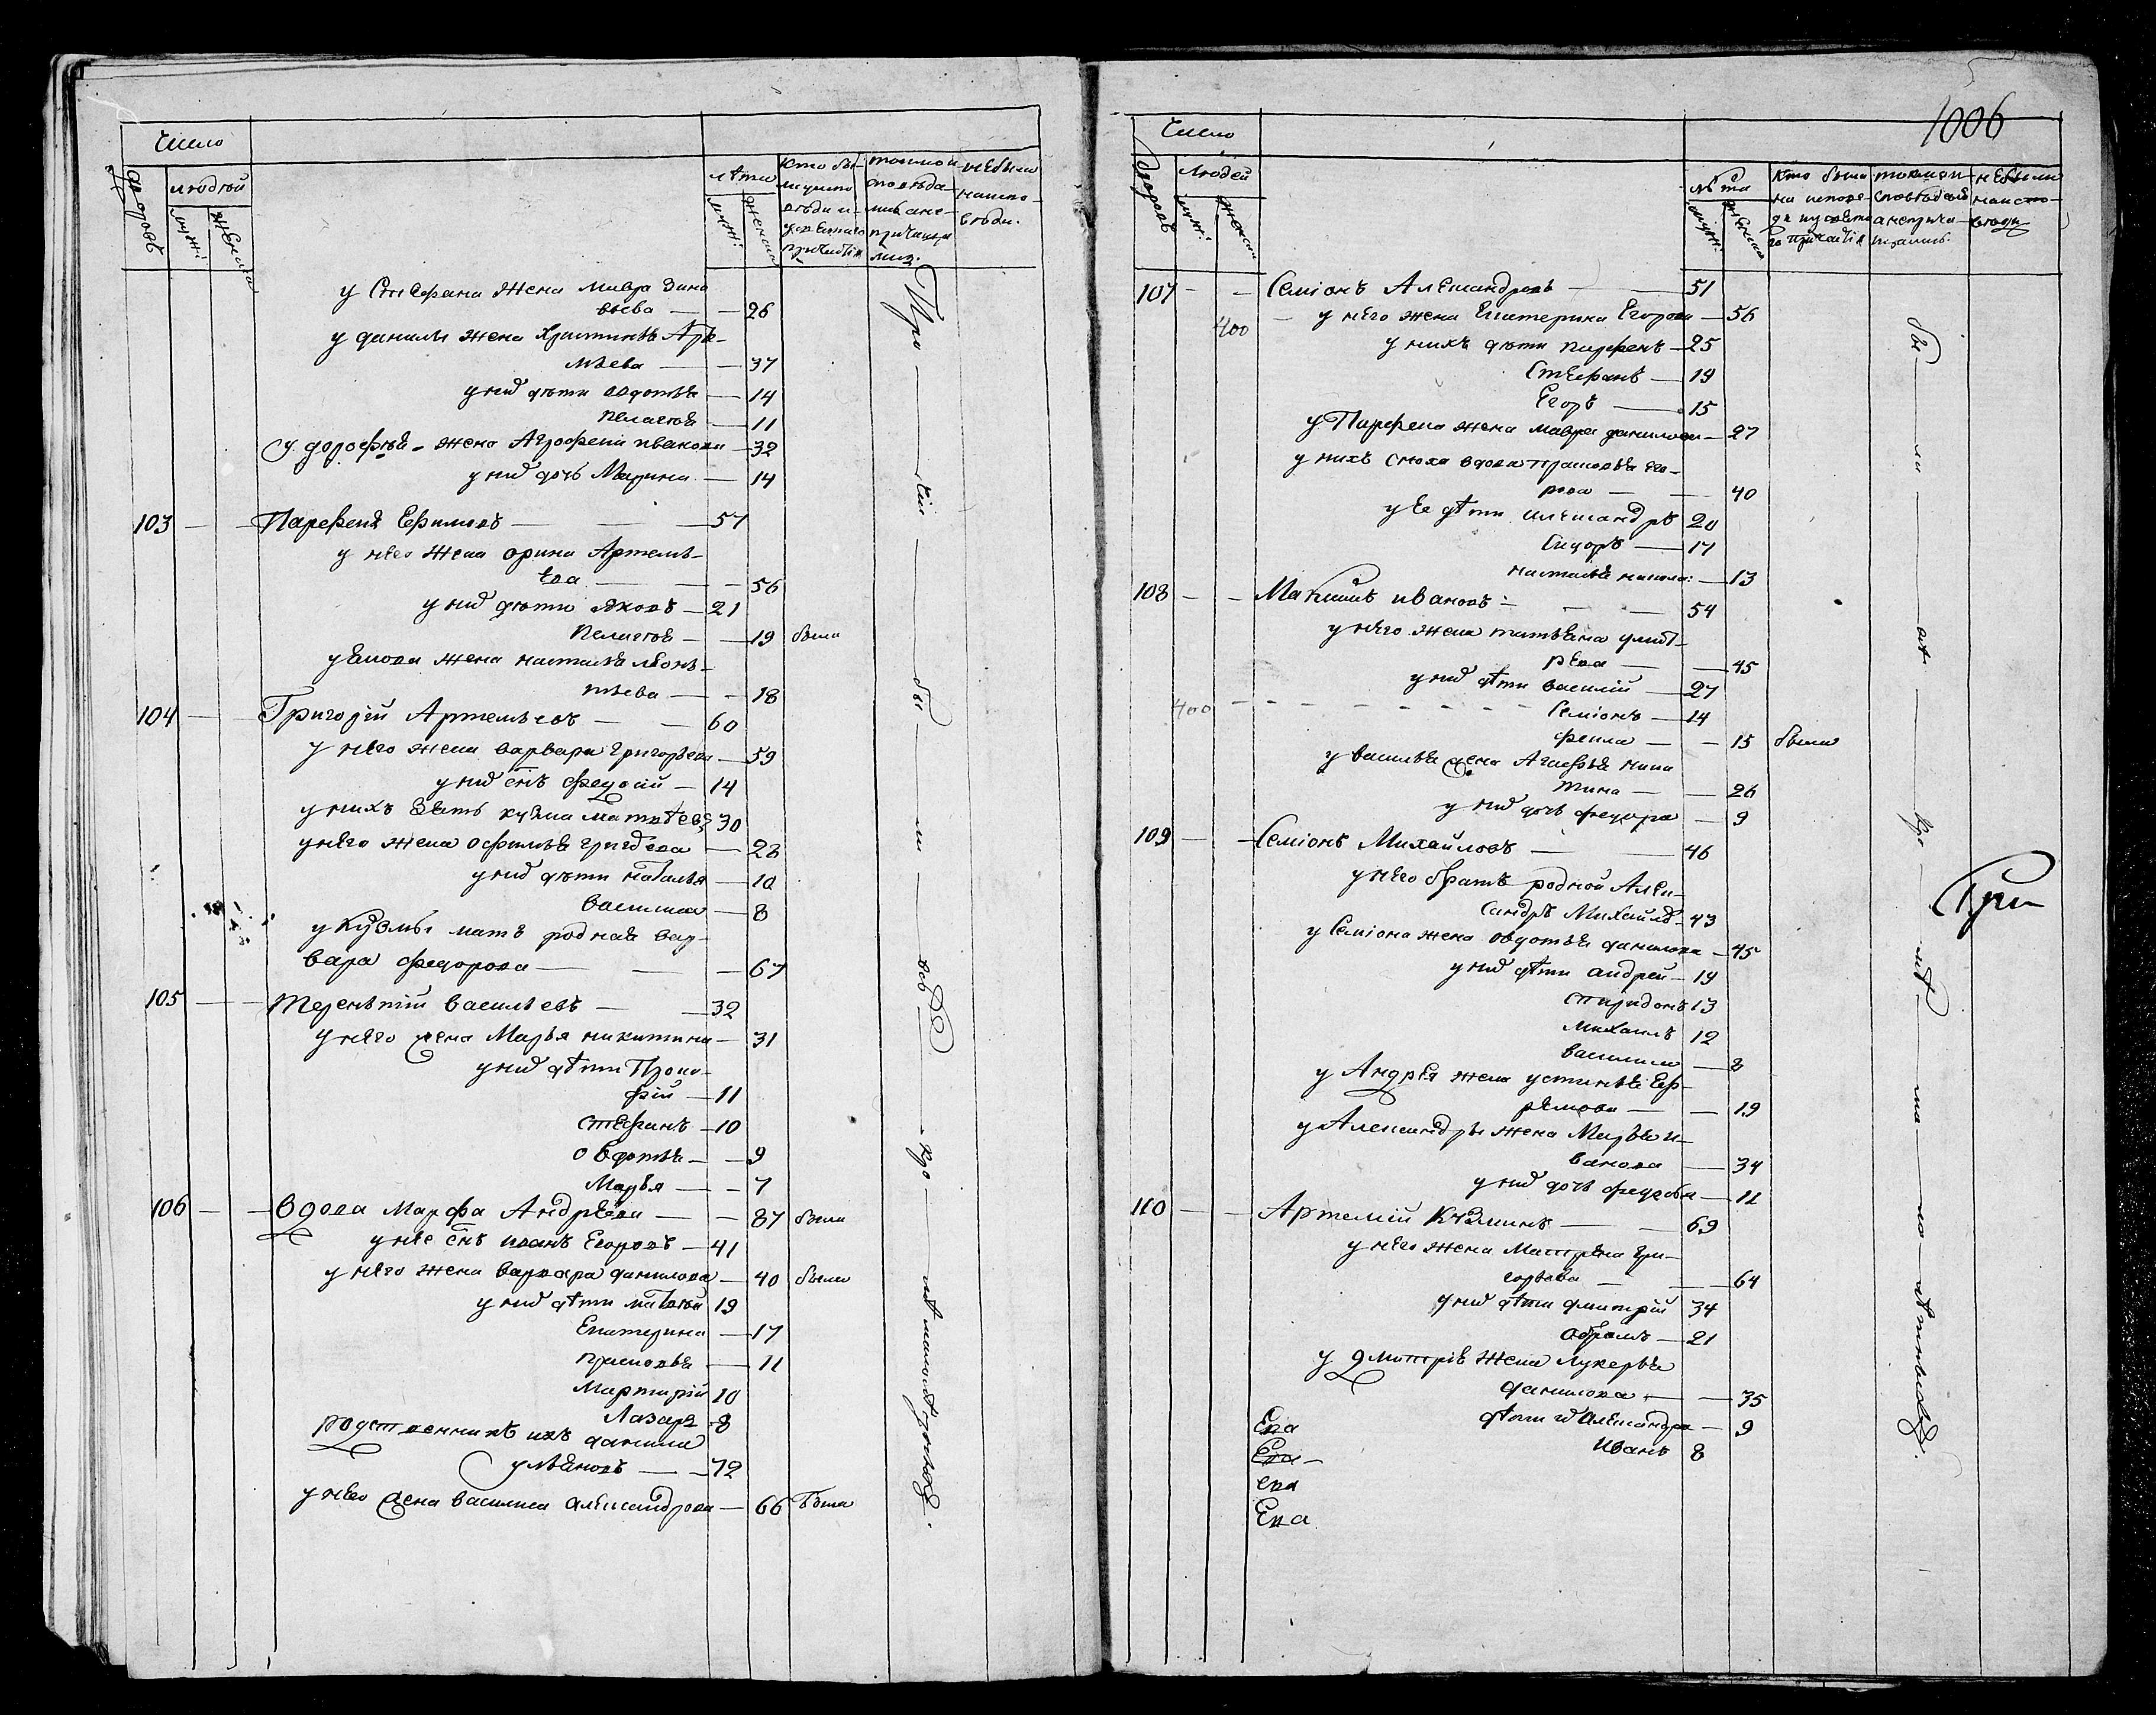 Число
дворовъ
людей
мужи:
женска
лѣта
мужи:
женска
Кто бы-
ли у испо
вѣди и
у святаго
причастія
токмо и
сповѣда-
лись а не-
причаща
лись.
не были
на испо-
вѣди.
у Стефана жена Мавра Дани
лова — 26
у данилы жена Христинья Арте
мьева — 37
у нихъ дѣти овдотья — 14
Пелагея — 11
у дорофѣя жена Агрофена иванова — 32
у нихъ дочь Марина — 14
103 — Парфенъ Ефимовъ — 57
у него жена орина Артемь-
ева — 56
у нихъ дѣти яковъ — 21
Пелагея — 19 была
у Якова жена наталья леонь-
тьева — 18
104 — Григорій Артемьевъ — 60
у него жена варвара григорьева — 59
у нихъ снъ федосій — 14
у нихъ зять кузма матвѣевъ 30
у него жена офимья григорьева — 28
у нихъ дѣти наталья — 10
василиса — 8
у Кузмы мать родная вар-
вара федорова — 67
105 — терентій васильевъ — 32
у него жена Марья никитина — 31
у нихъ дѣти Проко-
фій — 11
стефанъ — 10
овдотья — 9
Марья — 7
106 — вдова Марфа Андреева — 87 была
у нее снъ иванъ Егоровъ — 41
у него жена варвара данилова — 40 была
у нихъ дѣти матвѣй 19
Екатерина — 17
прасковья — 11
Мартирій 10
Лазарь 8
родственникъ ихъ данила
ульяновъ — 72
у него жена василиса александрова — 66 была
1006
Число
дворовъ
людей
мужи:
женска
лѣта
мужи:
женска
Кто были
на испове-
ди и у святa
го причастія
токмо и
сповѣдались
а не прича-
щались.
не были
на испо-
вѣди
107 — Семіонъ Александровъ — 51
400 у него жена Екатерина Егорова — 56
у нихъ дѣти парфенъ — 25
Стефанъ — 19
Егоръ — 15
у Парфена жена мавра данилова — 27
у нихъ сноха вдова прасковья его-
рова — 40
у ее дѣти александръ 20
Сидоръ — 17
наталья никола: — 13
108 — Максимъ ивановъ — 54
у него жена татьяна дмит-
рева — 45
у нихъ дѣти василій — 27
400 Семіонъ — 14
фекла — 15 была
у василья жена Агафья ники
тина — 26
у нихъ дочь федора — 9
109 — Семіонъ Михайловъ — 46
у него братъ родной Алек-
сандръ Михайловъ — 43
у Семіона жена овдотья данилова — 45
у нихъ дѣти андрей — 19
спиридонъ 13
михаилъ 12
василиса — 8
у Андрея жена устинья Еф-
ремова — 19
у Александры жена Марья и-
ванова — 34
у нихъ дочь федосья — 11
110 — Артемій Кузминъ — 69
у него жена Матрена гри-
горьева — 64
у нихъ дѣти дмитрій 34
абрамъ — 21
у дмитрія жена лукерья
данилова — 35
дѣти ихъ александра — 9
иванъ 8
Ека
Ека
ека
Ека
Гри